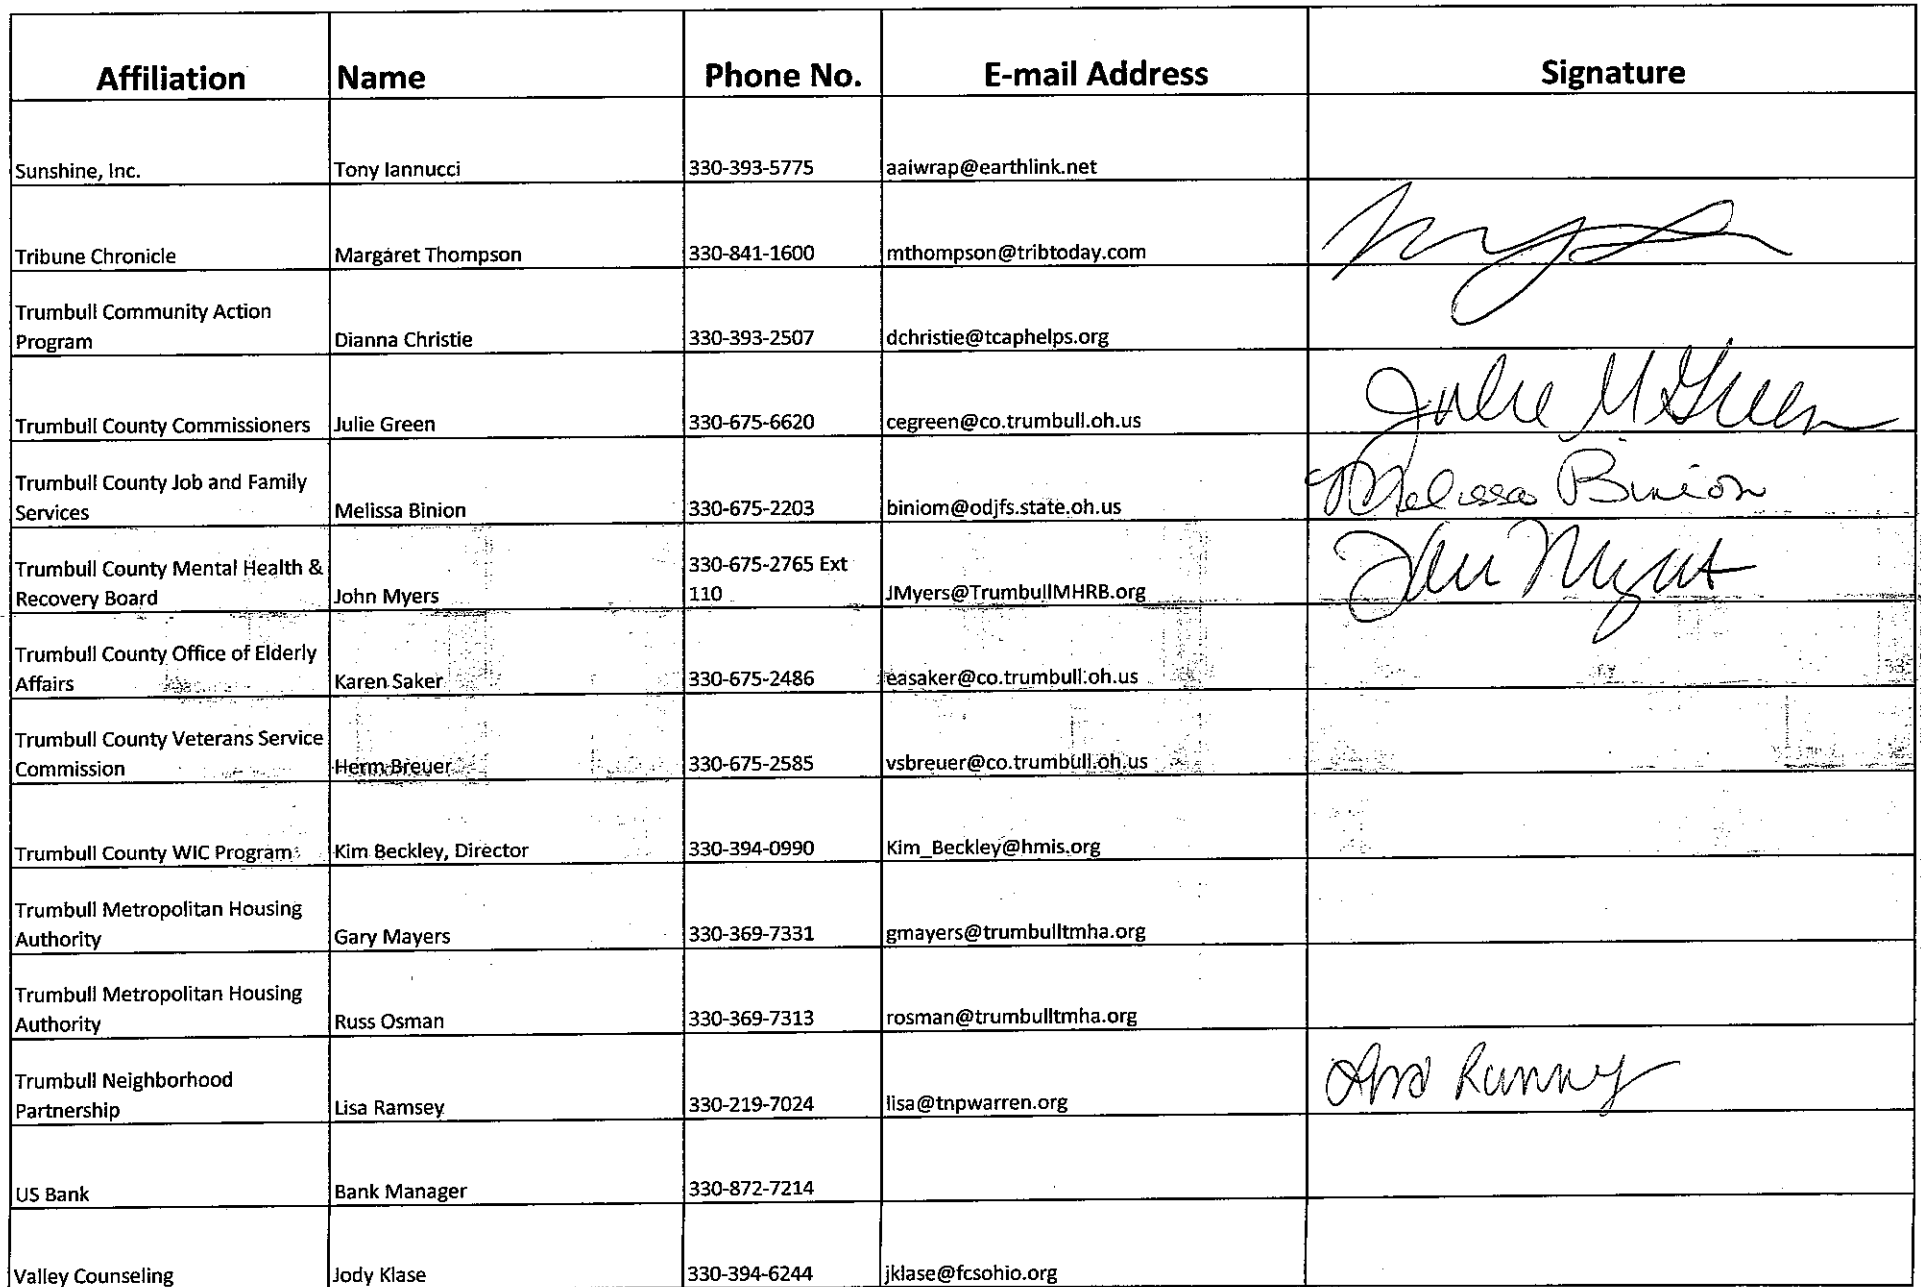 Affiliation Name Phone No. E-mail Address Signature
Sunshine, Inc. Tony Iannucci 330-393-5775 aaiwrap@earthlink.net
Tribune Chronicle Margaret Thompson 330-841-1600 mthompson@tribtoday.com
Trumbull Community Action
Program Dianna Christie 330-393-2507 dchristie@tcaphelps.org
Trumbull County Commissioners Julie Green 330-675-6620 cegreen@co.trumbull.oh.us Julie M Green
Trumbull County Job and Family
Services Melissa Binion 330-675-2203 biniom@odjfs.state.oh.us Melissa Binion
Trumbull County Mental Health & 330-675-2765 Ext
Recovery Board John Myers 110 JMyers@TrumbullMHRB.org
Trumbull County Office of Elderly
Affairs Karen Saker 330-675-2486 easaker@co.trumbull.oh.us
Trumbull County Veterans Service
Commission Herm Breuer 330-675-2585 vsbreuer@co.trumbull.oh.us
Trumbull County WIC Program Kim Beckley, Director 330-394-0990 Kim_Beckley@hmis.org
Trumbull Metropolitan Housing
Authority Gary Mayers 330-369-7331 gmayers@trumbulltmha.org
Trumbull Metropolitan Housing
Authority Russ Osman 330-369-7313 rosman@trumbulltmha.org
Trumbull Neighborhood
Partnership Lisa Ramsey 330-219-7024 lisa@tnpwarren.org
US Bank Bank Manager 330-872-7214
Valley Counseling Jody Klase 330-394-6244 jklase@fcsohio.org